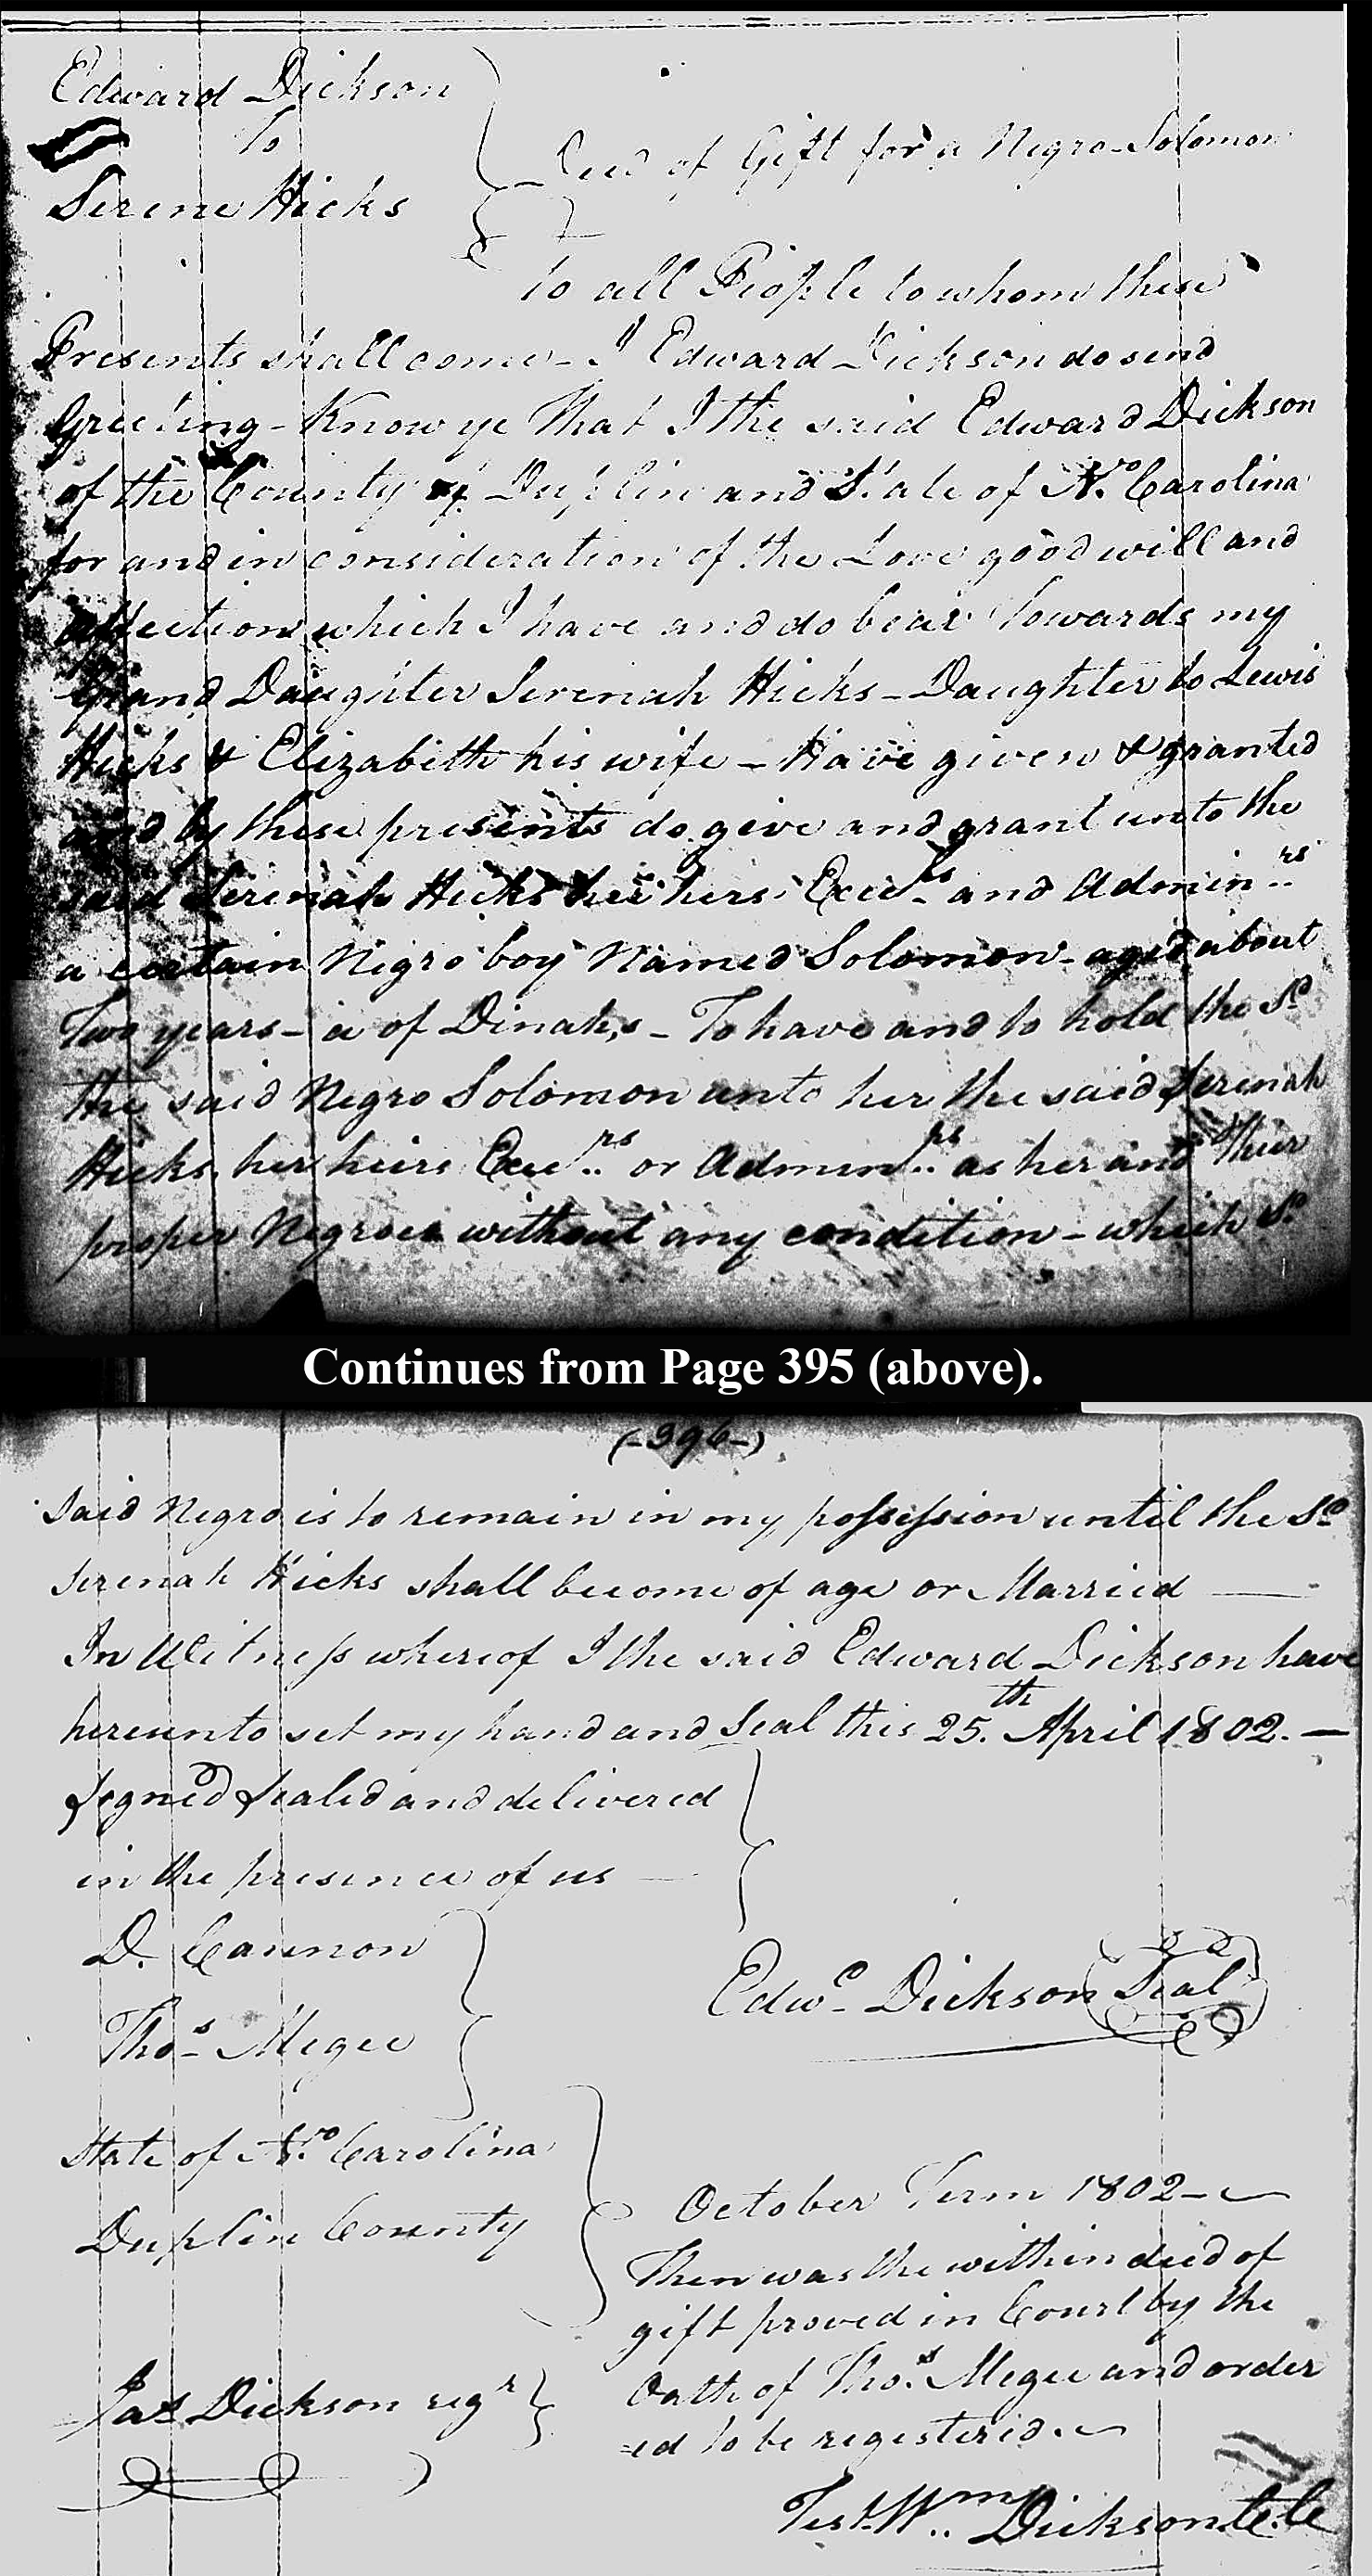 Edward Dickson
To
Serene Hicks
Deed of Gift for a Negro Solomon
To all People to whom these
Presents shall come - I Edward Dickson do send
Greeting - Know ye That I the said Edward Dickson
of the County of Duplin and State of No. Carolina
for and in consideration of the Love good will and
affection which I have and do bear Towards my
Grand Daughter Serenah Hicks - Daughter to Lewis
Hicks & Elizabeth his wife - Have given & granted
and by these presents do give and grant unto the
said Serenah Hicks her hers Exers and Adminrs
a certain Negro boy Named Solomon - aged about
Two years - a of Dinah,s - To have and to hold the Sd
the said Negro Solomon unto her the said Serenah
Hicks her heirs Exers or Adminrs as her and Their
proper Negroes without any condition - which Sd
Continues from Page 395 (above).
(-396-)
Said Negro is to remain in my possession until the Sd
Serenah Hicks shall become of age or Married —
In Witness whereof I the said Edward Dickson have
hereunto set my hand and Seal this 25.th April 1802. —
Signed Sealed and delivered
in the presence of us —
D. Cannon
Thos Megee
Edwd Dickson Seal
State of No. Carolina
Duplin County
October Term 1802 -
Then was the within deed of
gift proved in Court by the
Oath of Thos. Megee and order
=ed to be registerid.
Jas Dickson regr
Test. Wm.. Dickson C.C